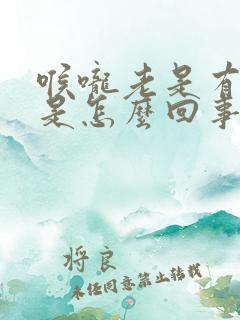 喉嚨老是有
是怎麼回事
将良
未经同意禁止转载